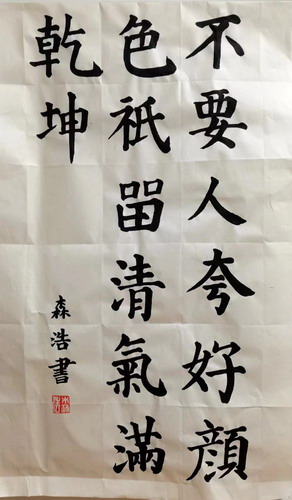 不要人夸好顔
色祇畱清氣滿
乾坤
森浩書